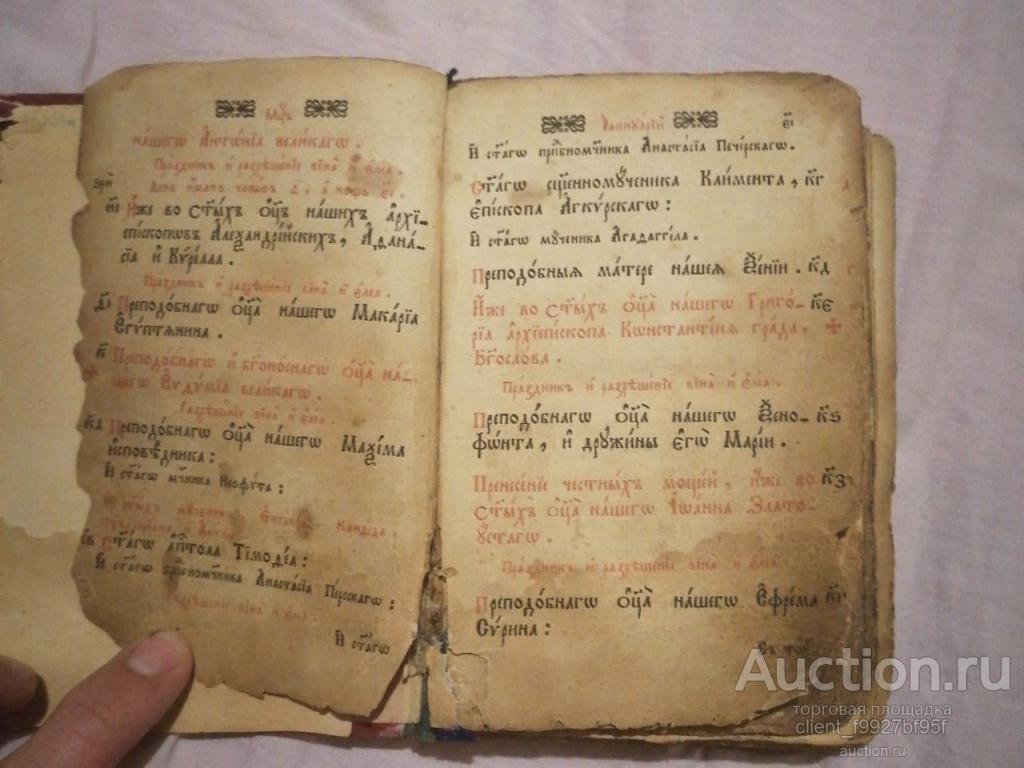 нашегѡ Антѡнїа великагѡ.
Праздникъ и разрѣшенїе вїна и елеа.
иї Иже во Ст҃ыхъ Ѻц҃ъ нашихъ Архї-
епископѡвъ Алеѯандрейскихъ, Аѳана-
сїа и Кѷрїлла.
Праздникъ и разрѣшенїе вїна и елеа.
ѳ҃ї Преподобнагѡ Ѻц҃а нашегѡ Макарїа
Егѵптѧнина.
к҃ Преподобнагѡ и бг҃оноснагѡ ѻц҃а на-
шегѡ Еѵѳѵмїа великагѡ.
Разрѣшенїе вїна и елеа.
к҃а Преподобнагѡ Ѻц҃а нашегѡ Маѯїма
исповѣдника:
И ст҃агѡ мч҃ника Неофѵта:
к҃в Ст҃агѡ ап҃тола Тїмоѳеа:
И ст҃агѡ прп҃бномч҃ника Анастасїа Персскагѡ:
Разрѣшенїе вїна и елеа.
И ст҃агѡ
Іаннуарїй е҃ї
И ст҃агѡ прп҃бномч҃ника Анастасїа Печерскагѡ.
Ст҃агѡ сщ҃енномꙋч҃еника Климента, к҃г
Епископа Агкѵрскагѡ:
И ст҃агѡ мꙋченика Агаѳаггела.
Преподобныѧ матере нашеѧ Ѯенїи. к҃д
Иже во Ст҃ыхъ Ѻц҃а нашегѡ Григо- к҃е
рїа архїепископа Кѡнстантїнѧ града,
Бг҃ослова.
Праздникъ и разрѣшенїе вїна и елеа.
Преподобнагѡ Ѻц҃а нашегѡ Ѯено- к҃ѕ
фѡнта, и дрꙋжины егѡ Марїи.
Пренесенїе честныхъ мощей, иже во к҃з
Ст҃ыхъ Ѻц҃а нашегѡ Іѡанна Злато-
ꙋстагѡ.
Праздникъ и разрѣшенїе вїна и елеа.
Преподобнагѡ Ѻц҃а нашегѡ Ефрема
Сѵрина:
Auction.ru
торговая площадка
client_f9927bf95f
auction.ru